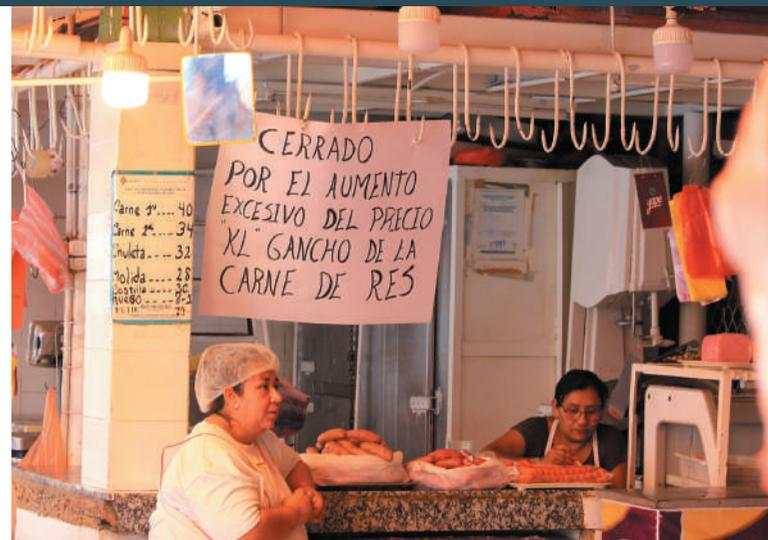 CERRADO
POR EL AUMENTO
EXCESIVO DEL PRECIO
"XL" GANCHO DE LA
CARNE DE RES
Carne 1ª.... 40
Carne 2ª.... 34
Chuleta.... 32
Molida.... 28
Costilla...
HUESO
yape